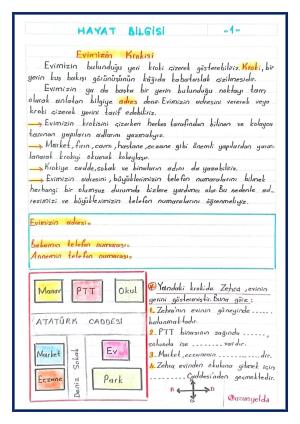 HAYAT BİLGİSİ -1-
Evimizin Krokisi
Evimizin bulunduğu yeri kroki çizerek gösterebiliriz. Kroki, bir
yerin kuş bakışı görünüşünün kâğıda kabataslak çizilmesidir.
Evimizin ya da başka bir yerin bulunduğu noktayı tam
olarak anlatan bilgiye adres denir. Evimizin adresini vererek veya
kroki çizerek yerini tarif edebiliriz.
→ Evimizin krokisini çizerken herkes tarafından bilinen ve kolayca
tanınan yapıların adlarını yazmalıyız.
→ Market, fırın, cami, hastane, eczane gibi önemli yapılardan yarar-
lanarak krokiyi okumak kolaylaşır.
→ Krokiye cadde, sokak ve binaların adını da yazabiliriz.
→ Evimizin adresini, büyüklerimizin telefon numaralarını bilmek
herhangi bir olumsuz durumda bizlere yardımcı olur. Bu nedenle ad-
resimizi ve büyüklerimizin telefon numaralarını öğrenmeliyiz.
Evimizin adresi:
Babamın telefon numarası:
Annemin telefon numarası:
Manav
PTT
Okul
ATATÜRK CADDESİ
Market
Eczane
Deniz Sokak
Ev
Park
Yandaki krokide Zehra, evinin
yerini göstermiştir. Buna göre;
1. Zehra'nın evinin güneyinde .....
bulunmaktadır.
2. PTT binasının sağında ......,
solunda ise .......... vardır.
3. Market, eczanenin .......... dir.
4. Zehra evinden okuluna gitmek için
.......... Caddesi'nden geçmektedir.
K
B
D
G